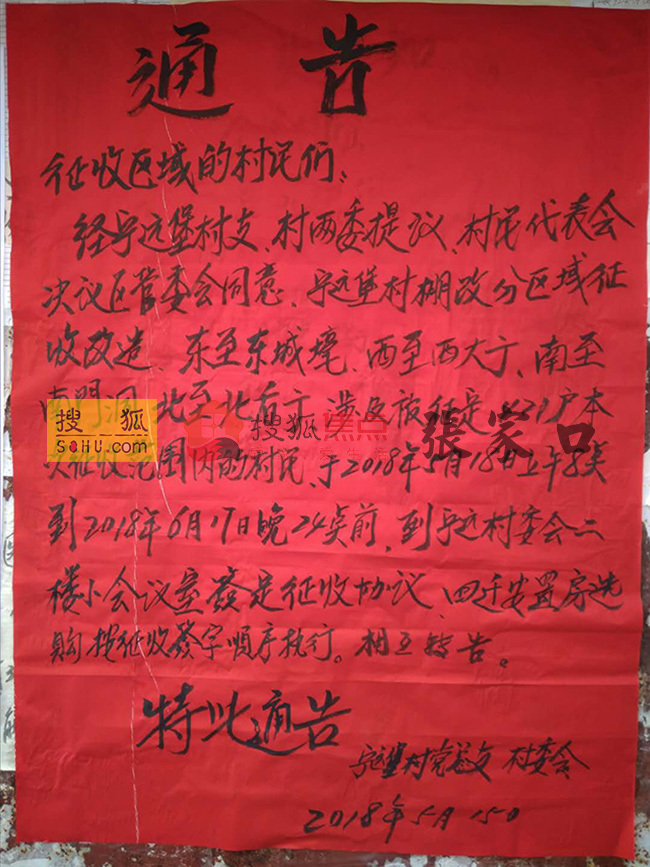 通告
征收区域的村民们：
经宁远堡村支、村两委提议、村民代表会
决议区管委会同意、宁远堡村棚改分区域征
收改造、东至东城墘、西至西大亍、南至
南門洞 北至北后亍 涉及被征 户本
次征收范围内的村民、于2018年5月18日上午8点
到2018年6月17日晚24点前，到宁远村委会二
楼小会议室簽定征收协议、回迁安置房选
购按征收簽字順序执行。相互转告。
特此通告
宁远堡村党总支 村委会
2018年5月15日
搜狐
SOHU.com
搜狐焦点
張家口